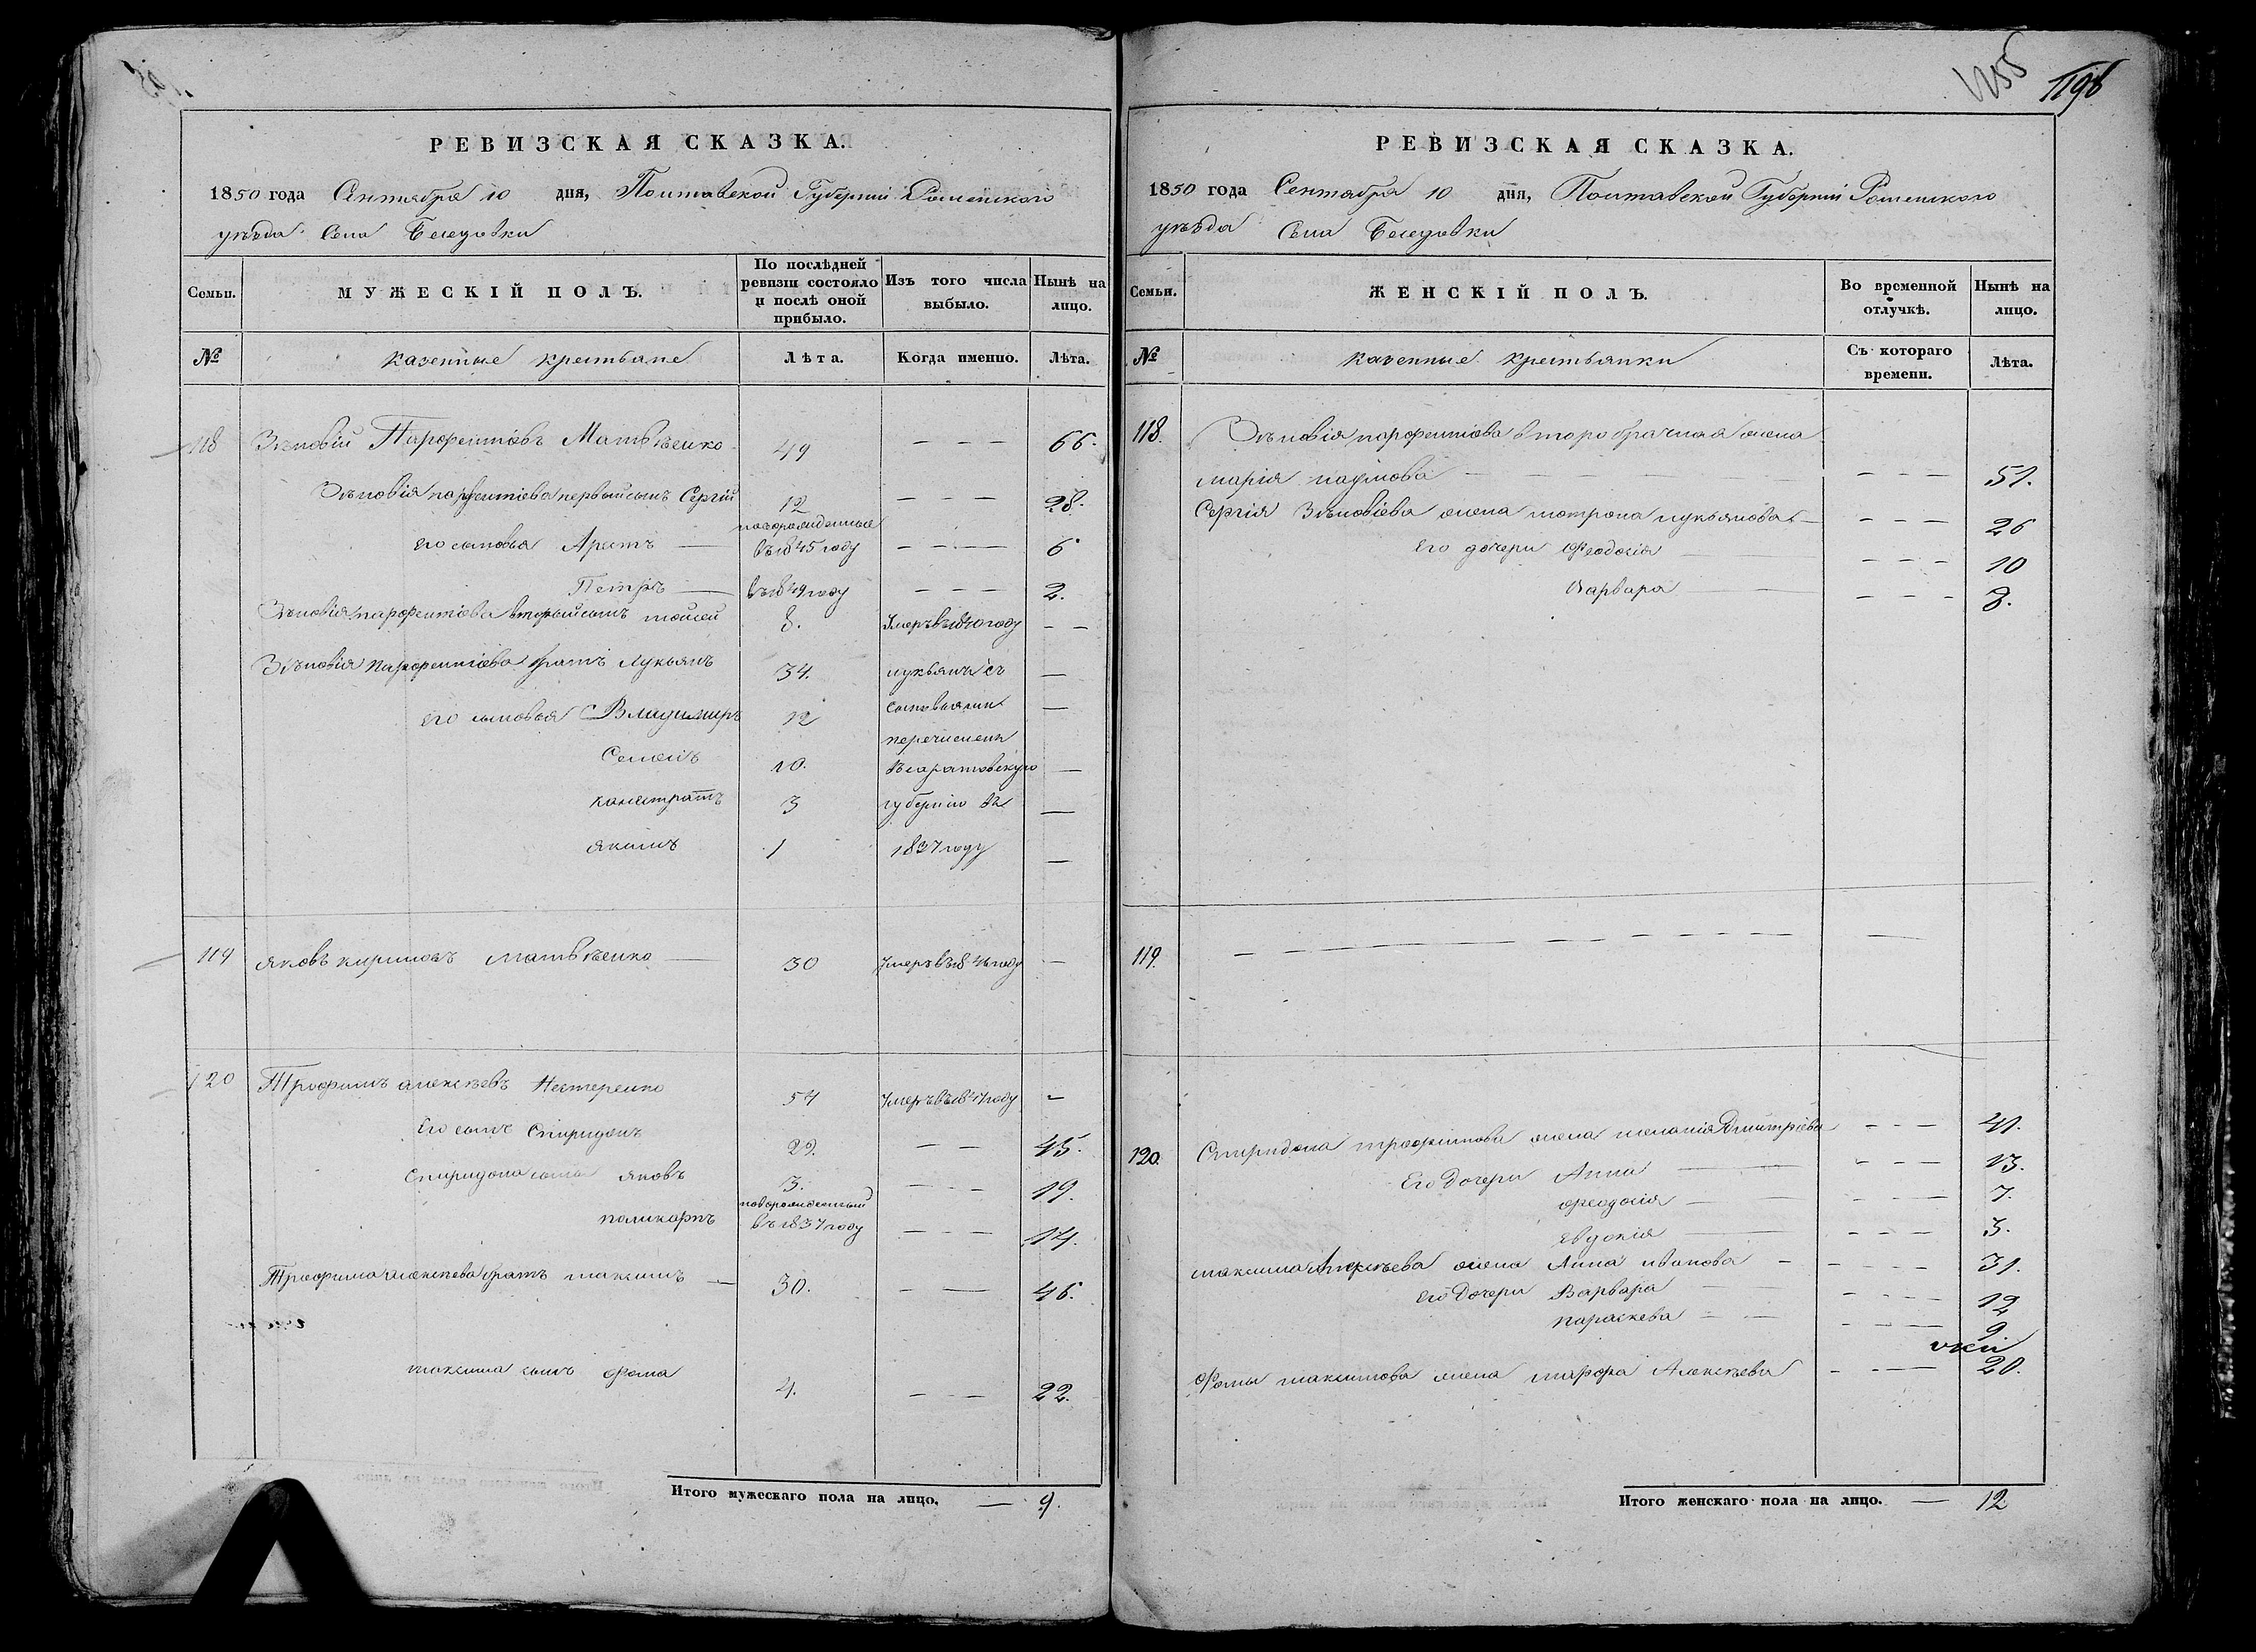 РЕВИЗСКАЯ СКАЗКА.
1850 года Сентября 10 дня, Полтавской Губерніи Роменского
уѣзда Села Беседовки
Семьи.
МУЖЕСКІЙ ПОЛЪ.
По послѣдней ревизіи состояло и послѣ оной прибыло.
Изъ того числа выбыло.
Нынѣ на лицо.
№ казенные крестьяне Лѣта. Когда именно. Лѣта.
118 Зѣновій Парфентіовъ Матвѣенко 49 — — — 66.
Зѣновія парфентіева первый сынъ Сергій 12 — — — 28.
новорожденные
его сыновья Арестъ — въ 1845 году — — — 6
Петръ — въ 1849 году — — — 2.
Зѣновія парфентіова вторый сынъ моисей 8. Умеръ въ 1840 году — —
Зѣновія парфентіова братъ Лукьянъ 34. лукьянъ съ —
его сыновья Владимиръ 12 сыновьями —
перечисленъ
Семенъ 10. въ саратовскую —
каністратъ 3 губернію въ —
якимъ 1 1837 году —
119 яковъ кириловъ Матвѣенко — 30 Умеръ въ 1846 году —
120 Трофимъ алексѣевъ Нестеренко 54 Умеръ въ 1847 году —
Его сынъ Спиридонъ 29. — — 45.
Спиридона сыны яковъ 3. — — — 19.
новорожденный
поликарпъ въ 1837 году — — — 14.
Трофима алексѣева братъ максимъ — 30. — — 46.
максима сынъ фома 4. — — — 22.
Итого мужескаго пола на лицо. — 9.
1198
РЕВИЗСКАЯ СКАЗКА.
1850 года Сентября 10 дня, Полтавской Губерніи Роменского
уѣзда Села Беседовки
Семьи.
ЖЕНСКІЙ ПОЛЪ.
Во временной отлучкѣ.
Нынѣ на лицо.
№ казенные крестьянки Съ котораго времени. Лѣта.
118. Зѣновія парфентіова второбрачная жена
марія наумова — — — — 51.
Сергія Зѣновіева жена мотрона лукьянова — — — — 26
Его дочери Феодосія — — — — 10
Варвара — — — — 8.
119. — — — — — — — — — —
120. Спиридона трофимова жена меланія Дмитріева — — — 41.
Его Дочери Анна — — — — 13.
феодосія — — — — 7.
Евдокія — — — — 3.
максима Алексѣева жена Анна иванова — — — — — 31.
Его Дочери Варвара — — — — 12
параскева — — — — — — 9.
Фомы максимова жена марфа Алексѣева — — — 20.
Итого женскаго пола на лицо. — 12